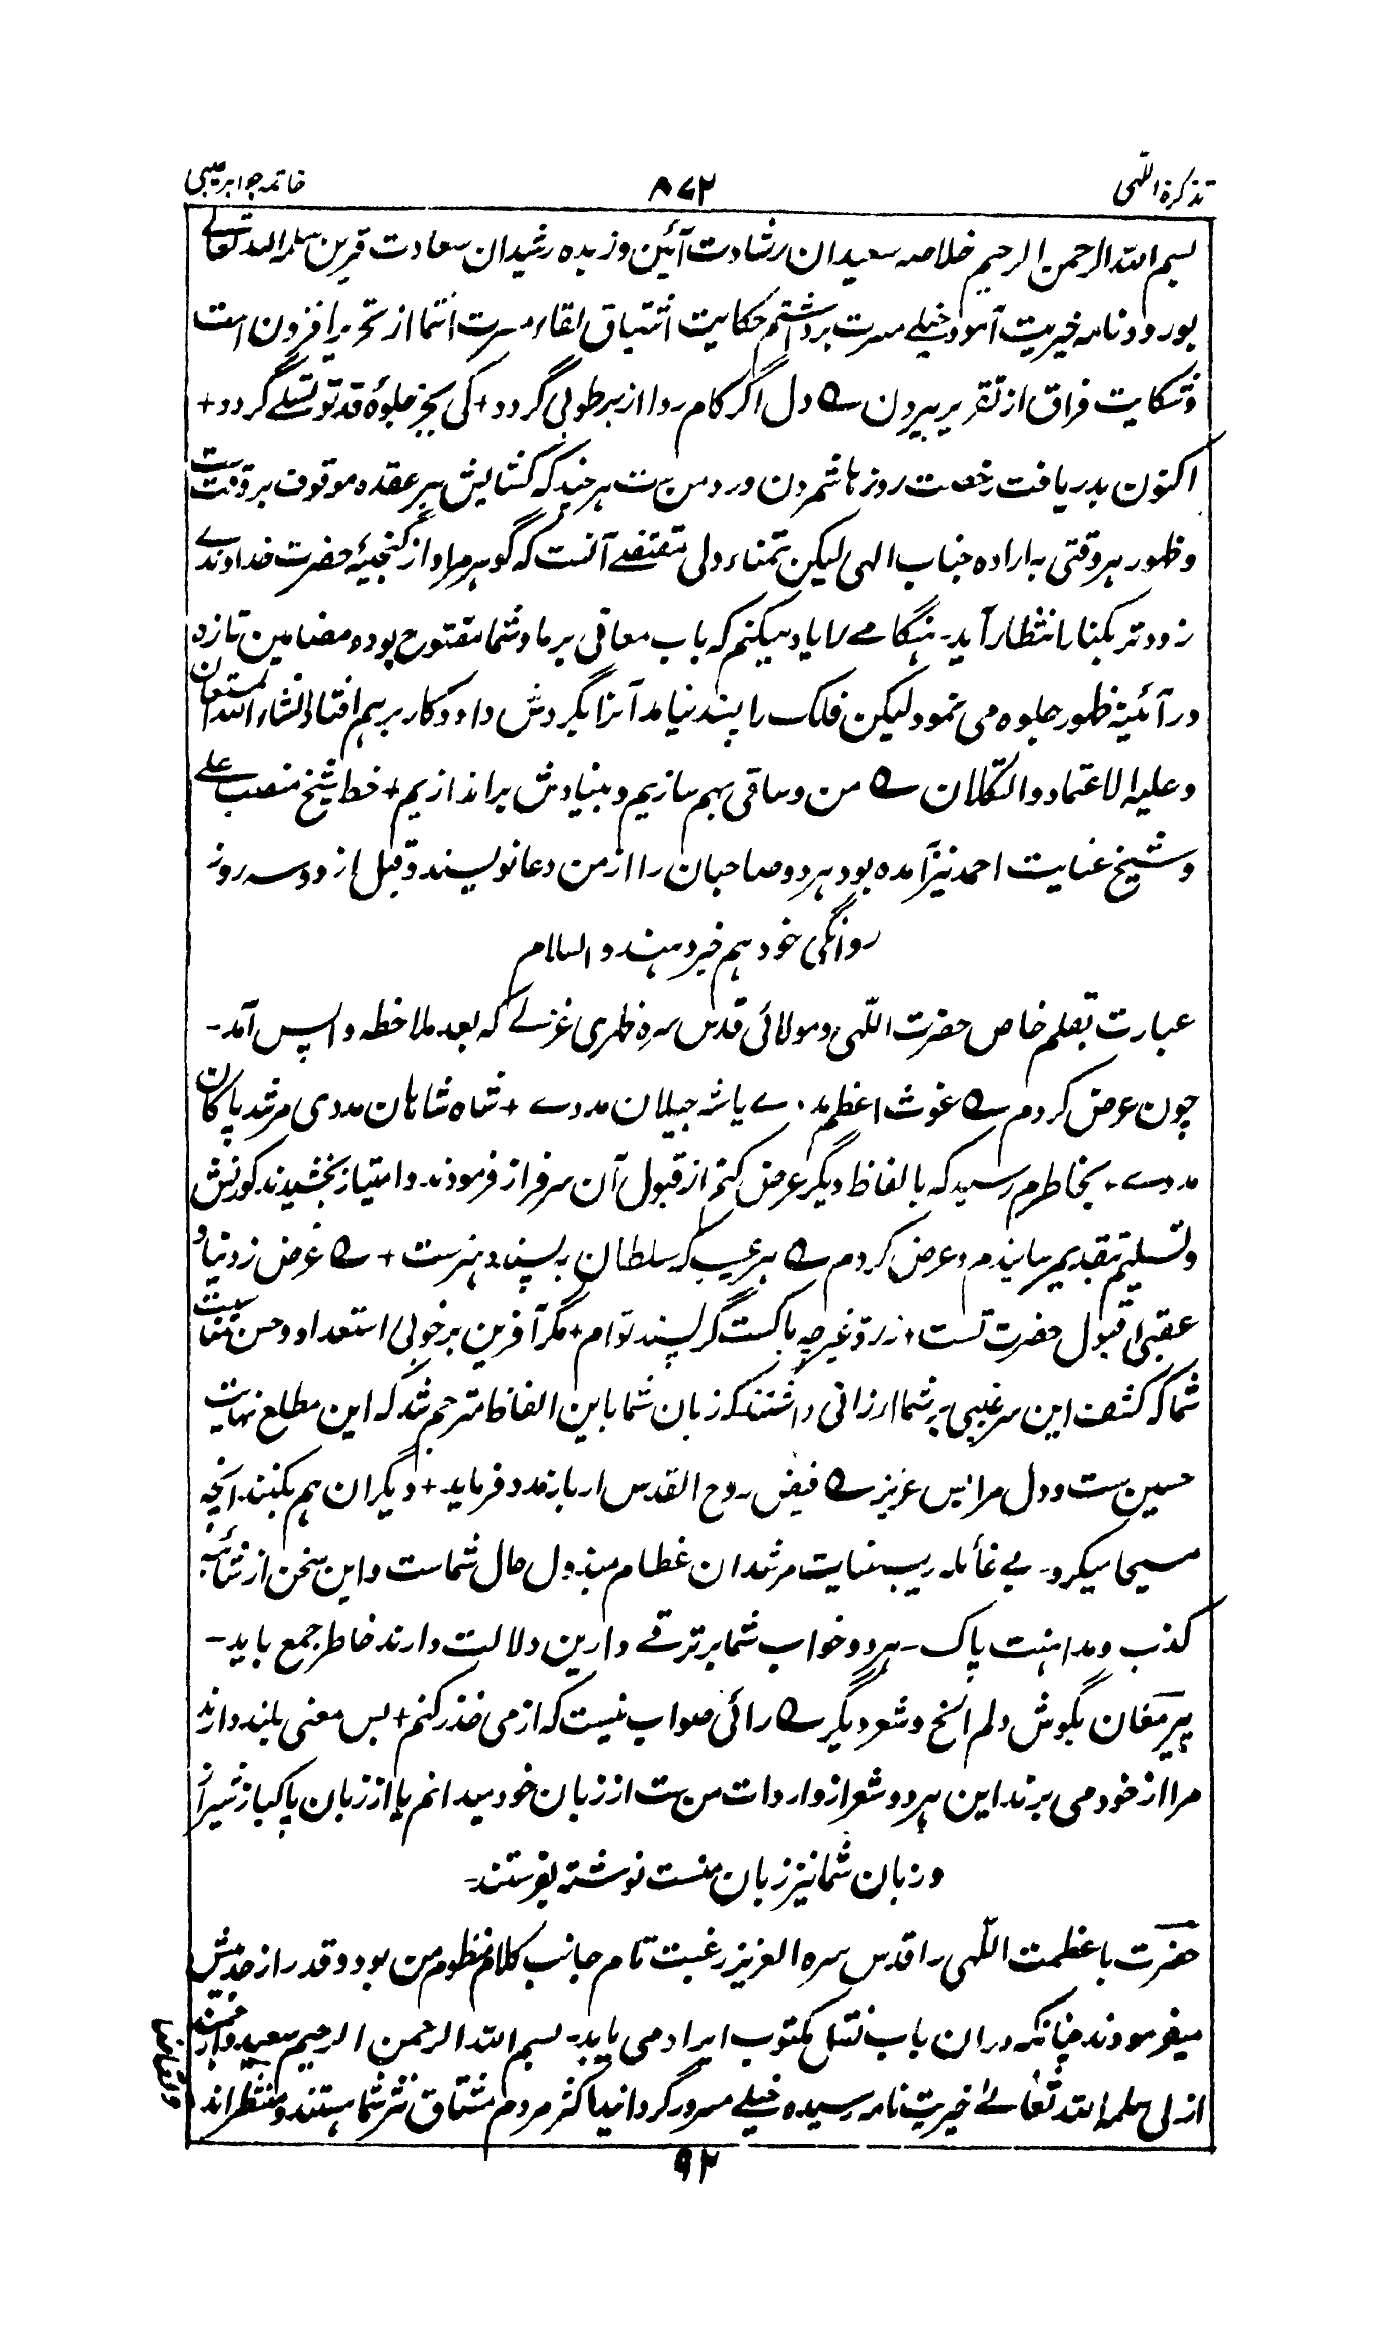 تذکرة اللّٰہی ۸۷۲ خاتمہ جواہر غیبی
بسم اللہ الرحمن الرحیم خلاصہ سعیدان رشادت آئین و زبدہ رشیدان سعادت قرین سلمہ اللہ تعالےٰ
بورود نامہ خیریت آمود خیلے مسرت برداشتم حکایت اشتیاق لقاء مسرت انتما از تحریر افزون است
و شکایت فراق از تقریر بیرون ؎ دل اگر کام روا از بر طوبی گردد + کی بجز جلوۂ قد تو تسلے گردد +
اکنون بدریافت رخصت روزہا شمردن ورد من ست ہرچند کہ کشایش ہر عقدہ موقوف بروقت ست
و ظہور ہر وقتی بہ ارادہ جناب الٰہی لیکن تمناء دلی مقتضے آنست کہ گوہر مراد از گنجینۂ حضرت خداوندے
زودتر بکنار انتظار آید۔ ہنگامے را یاد میکنم کہ باب معافی بر ما و شما مفتوح بودہ مضامین تازہ
در آئینۂ ظہور جلوہ می نمود لیکن فلک را پسند نیامد آنرا بگردش داد و کار برہم افتاد انشاء اللہ المستعان
و علیہ الاعتماد و التکلان ؎ من و ساقی بہم سازیم و بنیادش براندازیم + خط شیخ منصب علے
و شیخ عنایت احمد نیز آمدہ بود ہر دو صاحبان را از من دعا نویسند و قبل از دو سہ روز
روانگی خود ہم خبر دہند والسلام
عبارت بقلم خاص حضرت اللّٰہی و مولائی قدس سرہ ظہری غزلے کہ بعد ملاحظہ واپس آمد۔
چون عرض کردم ؎ غوث اعظم مددے یا شہ جیلان مددے + شاہ شاہان مددی مرشد پاکان
مددے۔ بخاطرم رسید کہ بالفاظ دیگر عرض کنم از قبول آن سرفراز فرمودند و امتیاز بخشیدند کورنش
و تسلیم تقدیم رسانیدم و عرض کردم ؎ ہر عیب کہ سلطان بہ پسندد ہنرست + ؎ غرض ز دنیا و
عقبی ام قبول حضرت تست + ز رد غیر چہ باکست گر پسند تو ام + مگر آفرین بر خوبی استعداد و حسن مناسبت
شما کہ کشف این سر غیبی بر شما ارزانی داشتند کہ زبان شما باین الفاظ مترجم شد کہ این مطلع نہایت
حسین ست و دل مرا بس عزیز ؎ فیض روح القدس ار باز مدد فرماید + دیگران ہم بکنند آنچہ
مسیحا میکرد۔ بے غائلہ ریب عنایت مرشدان عظام مبذول حال شماست و این سخن از شائبہ
کذب و مداہنت پاک۔ ہر دو خواب شما بر ترقے دارین دلالت دارند خاطر جمع باید۔
پیر مغان بگوش دلم الخ و شعر دیگر ؎ رائی صواب نیست کہ از می حذر کنم + بس معنی بلند دارند
مرا از خود می برند این ہر دو شعر از واردات من ست از زبان خود میدانم یا از زبان پاکباز شیراز
و زبان شما نیز زبان منست نوشتہ بفرستند۔
حضرت با عظمت اللّٰہی را قدس سرہ العزیز رغبت تام جانب کلام منظوم من بود و قدر از حد بیش
میفرمودند چنانکہ دران باب نقل مکتوب ایراد می یابد۔ بسم اللہ الرحمن الرحیم سعید
ازلی سلمہ اللہ تعالےٰ خیریت نامہ رسیدہ خیلے مسرور گردانید اکثر مردم مشتاق نثر شما ہستند و منتظر اند
۹۲